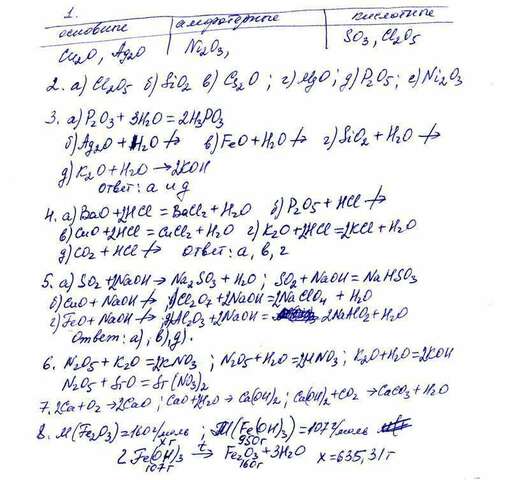 1.
основные амфотерные кислотные
Cu₂O, Ag₂O Ni₂O₃, SO₃, Cl₂O₅
2. а) Cl₂O₅ б) SiO₂ в) Cs₂O ; г) MgO ; д) P₂O₅ ; е) Ni₂O₃
3. а) P₂O₃ + 3H₂O = 2H₃PO₃
б) Ag₂O + H₂O ↛ в) FeO + H₂O ↛ г) SiO₂ + H₂O ↛
д) K₂O + H₂O → 2KOH
ответ: а и д
4. а) BaO + 2HCl = BaCl₂ + H₂O б) P₂O₅ + HCl ↛
в) CuO + 2HCl = CuCl₂ + H₂O г) K₂O + 2HCl = 2KCl + H₂O
д) CO₂ + HCl ↛ ответ: а, в, г
5. а) SO₂ + 2NaOH → Na₂SO₃ + H₂O ; SO₂ + NaOH = NaHSO₃
б) CuO + NaOH ↛ в) Cl₂O₇ + 2NaOH = 2NaClO₄ + H₂O
г) FeO + NaOH ↛ д) Al₂O₃ + 2NaOH = 2NaAlO₂ + H₂O
Ответ: а), в), д).
6. N₂O₅ + K₂O = 2KNO₃ ; N₂O₅ + H₂O = 2HNO₃ ; K₂O + H₂O = 2KOH
N₂O₅ + SrO = Sr(NO₃)₂
7. 2Ca + O₂ → 2CaO ; CaO + H₂O → Ca(OH)₂ ; Ca(OH)₂ + CO₂ → CaCO₃ + H₂O
8. M(Fe₂O₃) = 160 г/моль ; M(Fe(OH)₃) = 107 г/моль
950г хг
2Fe(OH)₃ t→ Fe₂O₃ + 3H₂O x = 635,31г
107г 160г